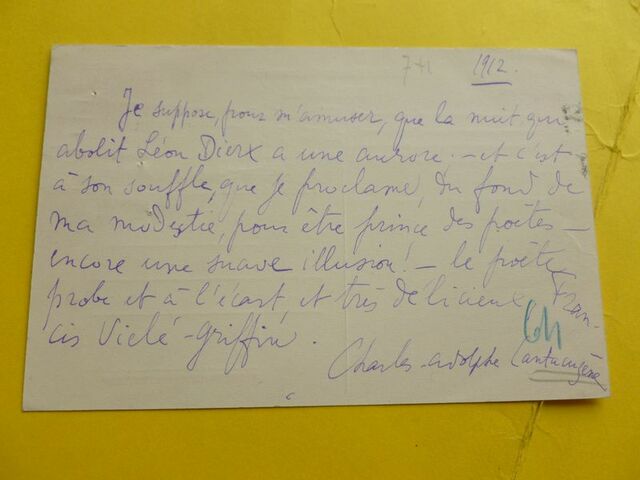 7+1 1912.
Je suppose, pour m'amuser, que la nuit qui
abolit Léon Dierx a une aurore. – et c'est
à son souffle, que je proclame, du fond de
ma modestie, pour être prince des poètes –
encore une suave illusion! – le poète
probe et à l'écart, et très délicieux Fran-
cis Vielé-Griffin.
Charles-Adolphe Cantacuzène
64